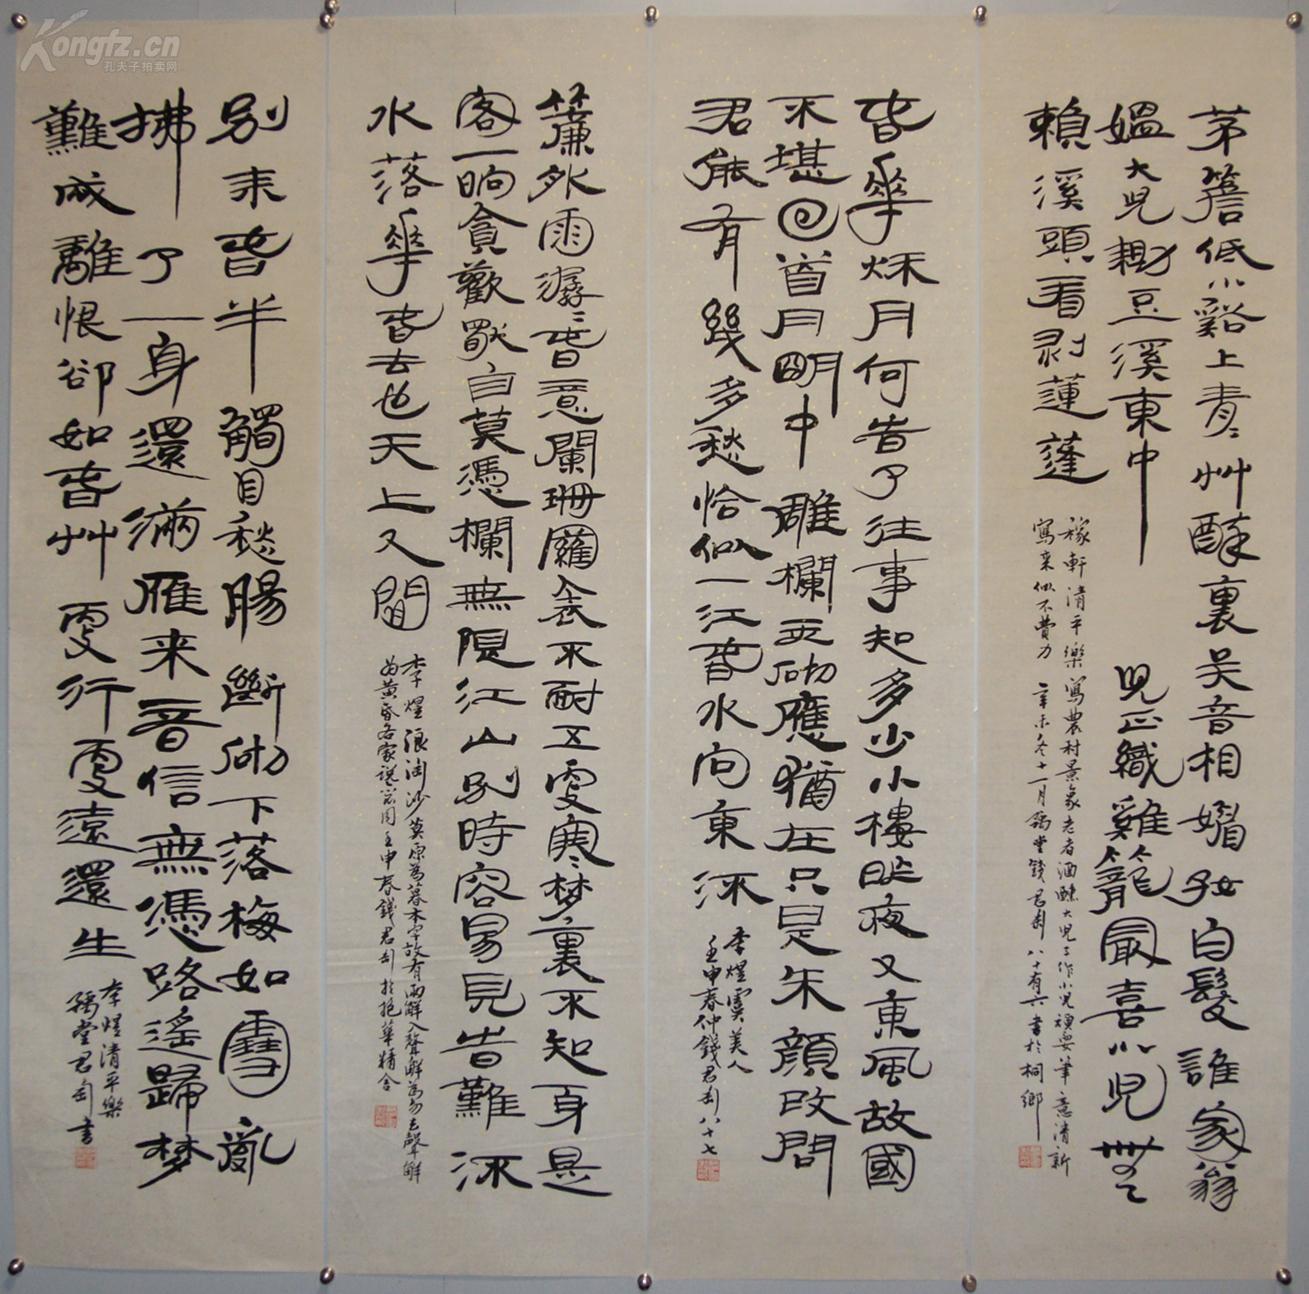 茅簷低小谿上青〻艸醉裏吴音相媚好白髮誰家翁
媪大児耡豆溪東中児正織雞籠最喜小児無
賴溪頭看剥蓮蓬
稼軒清平樂寫農村景象老者酒醉大児工作小児頑耍筆意清新
寫来似不費力 辛未冬十一月錢君匋八十有六書於桐鄉
春華秋月何時了往事知多少小樓昨夜又東風故國
不堪回首月明中雕欄玉砌應猶在只是朱顏改問
君能有幾多愁恰似一江春水向東流
李煜虞美人
壬申春仲錢君匋八十七
簾外雨潺〻春意闌珊羅衾不耐五更寒梦裏不知身是
客一晌貪歡獨自莫憑欄無限江山别時容易見時難流
水落華春去也天上人間
李煜浪淘沙莫原為暮本字故有兩解入聲解為勿去聲解
為黄昏各家說不同壬申春錢君匋於抱華精舍
别来春半觸目愁腸斷砌下落梅如雪亂
拂了一身還滿雁来音信無憑路遙歸梦
難成離恨卻如春艸更行更遠還生
李煜清平樂
君匋書
Kongfz.cn
孔夫子拍卖网